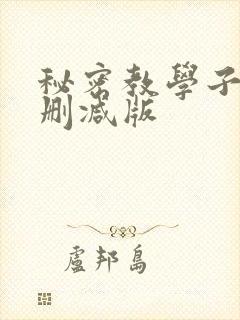 秘密教學子
删减版
盧邦島